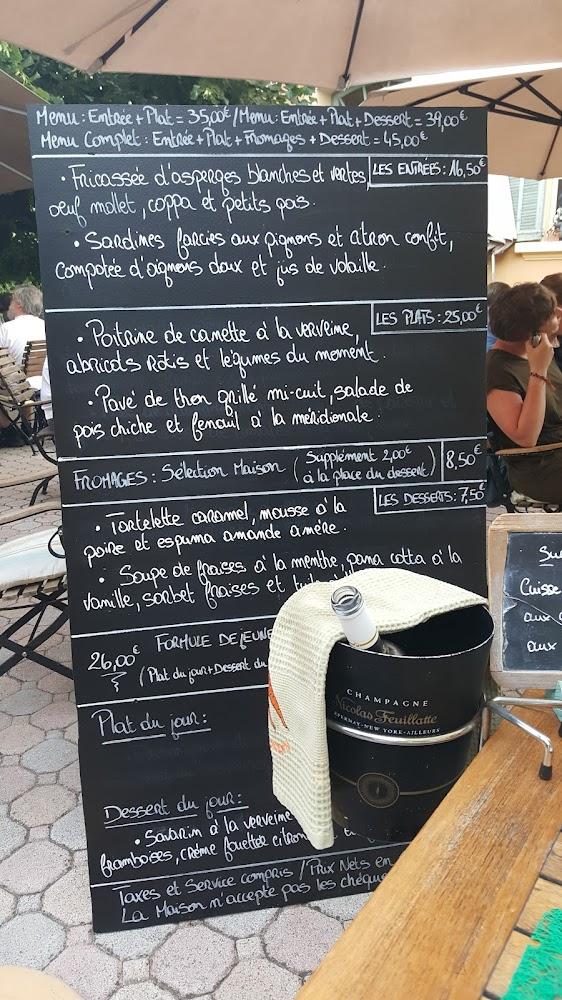 Menu : Entrée + Plat = 35,00€ / Menu : Entrée + Plat + Dessert = 39,00€
Menu Complet : Entrée + Plat + Fromages + Dessert = 45,00€
LES ENTRÉES : 16,50€
• Fricassée d'asperges blanches et vertes,
oeuf mollet, coppa et petits pois.
• Sardines farcies aux pignons et citron confit,
compotée d'oignons doux et jus de volaille.
LES PLATS : 25,00€
• Poitrine de canette à la verveine,
abricots rôtis et légumes du moment.
• Pavé de thon grillé mi-cuit, salade de
pois chiche et fenouil à la méridionale.
FROMAGES : Sélection Maison ( Supplément 2,00€
à la place du dessert) 8,50€
LES DESSERTS : 7,50€
• Tartelette caramel, mousse à la
poire et espuma amande amère.
• Soupe de fraises à la menthe, pana cotta à la
vanille, sorbet fraises et
26,00€ FORMULE DE JEUNE
(Plat du jour + Dessert du
Plat du jour :
Dessert du jour :
• Savarin à la verveine
framboises, crème fouettée citron
Taxes et Service compris / Prix Nets en
La Maison n'accepte pas les chèque
CHAMPAGNE
Nicolas Feuillatte
EPERNAY-NEW YORK-AILLEURS
Su
Cuisse
aux
aux